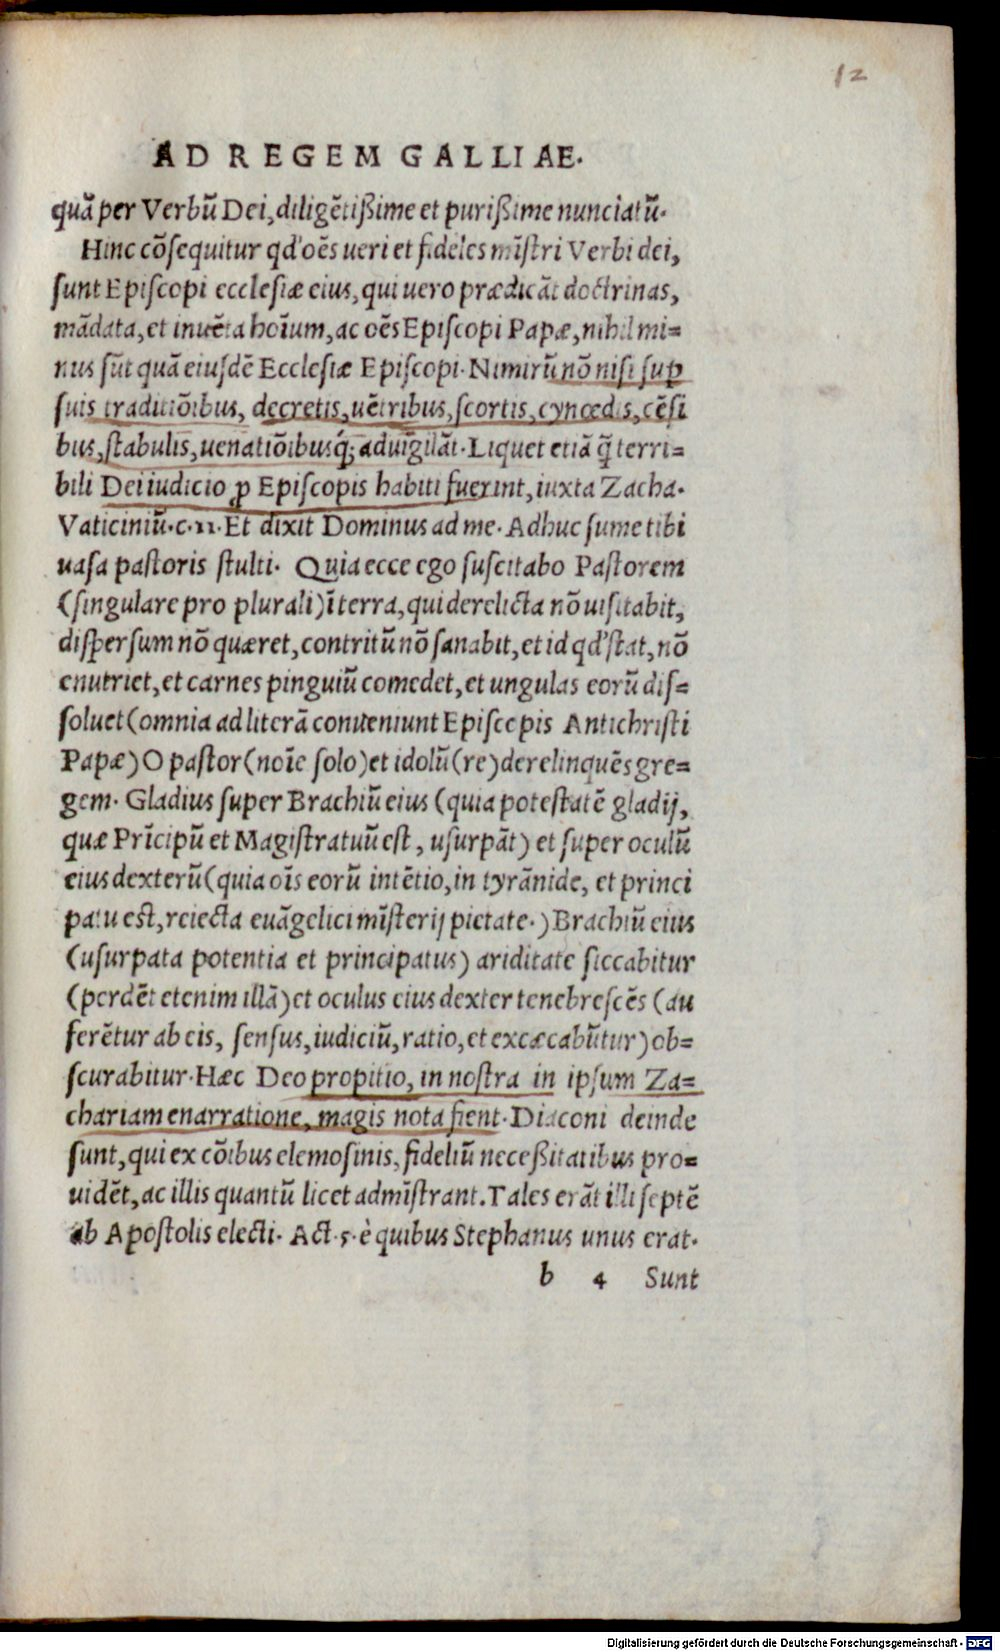 12
AD REGEM GALLIAE.
quã per Verbũ Dei, diligẽtißime et purißime nunciatũ.
Hinc cõsequitur qd' oẽs ueri et fideles mĩstri Verbi dei,
sunt Episcopi ecclesiæ eius, qui uero prædicãt doctrinas,
mãdata, et inuẽta hoĩum, ac oẽs Episcopi Papæ, nihil mi=
nus sũt quã eiusdẽ Ecclesiæ Episcopi. Nimirũ nõ nisi suꝑ
suis traditiõibus, decretis, uẽtribus, scortis, cynœdis, cẽsi
bus, stabulis, uenatiõibusq́; aduigilãt. Liquet etiã q̃ terri=
bili Dei iudicio ꝓ Episcopis habiti fuerint, iuxta Zacha.
Vaticiniũ. c. 11. Et dixit Dominus ad me. Adhuc sume tibi
uasa pastoris stulti. Quia ecce ego suscitabo Pastorem
(singulare pro plurali) ĩ terra, qui derelicta nõ uisitabit,
dispersum nõ quæret, contritũ nõ sanabit, et id qd' stat, nõ
enutriet, et carnes pinguiũ comedet, et ungulas eorũ dis=
soluet (omnia ad literã conueniunt Episcopis Antichristi
Papæ) O pastor (noĩe solo) et idolũ (re) derelinquẽs gre=
gem. Gladius super Brachiũ eius (quia potestatẽ gladij,
quæ Prĩcipũ et Magistratuũ est, usurpãt) et super oculũ
eius dexterũ (quia oĩs eorũ intẽtio, in tyrãnide, et princi
patu est, reiecta euãgelici mĩsterij pietate.) Brachiũ eius
(usurpata potentia et principatus) ariditate siccabitur
(perdẽt etenim illã) et oculus eius dexter tenebrescẽs (au
ferẽtur ab eis, sensus, iudiciũ, ratio, et excæcabũtur) ob=
scurabitur. Hæc Deo propitio, in nostra in ipsum Za=
chariam enarratione, magis nota fient. Diaconi deinde
sunt, qui ex cõibus elemosinis, fideliũ neceßitatibus pro=
uidẽt, ac illis quantũ licet admĩstrant. Tales erãt illi septẽ
ab Apostolis electi. Act. 5. è quibus Stephanus unus erat.
b 4 Sunt
Digitalisierung gefördert durch die Deutsche Forschungsgemeinschaft - DFG